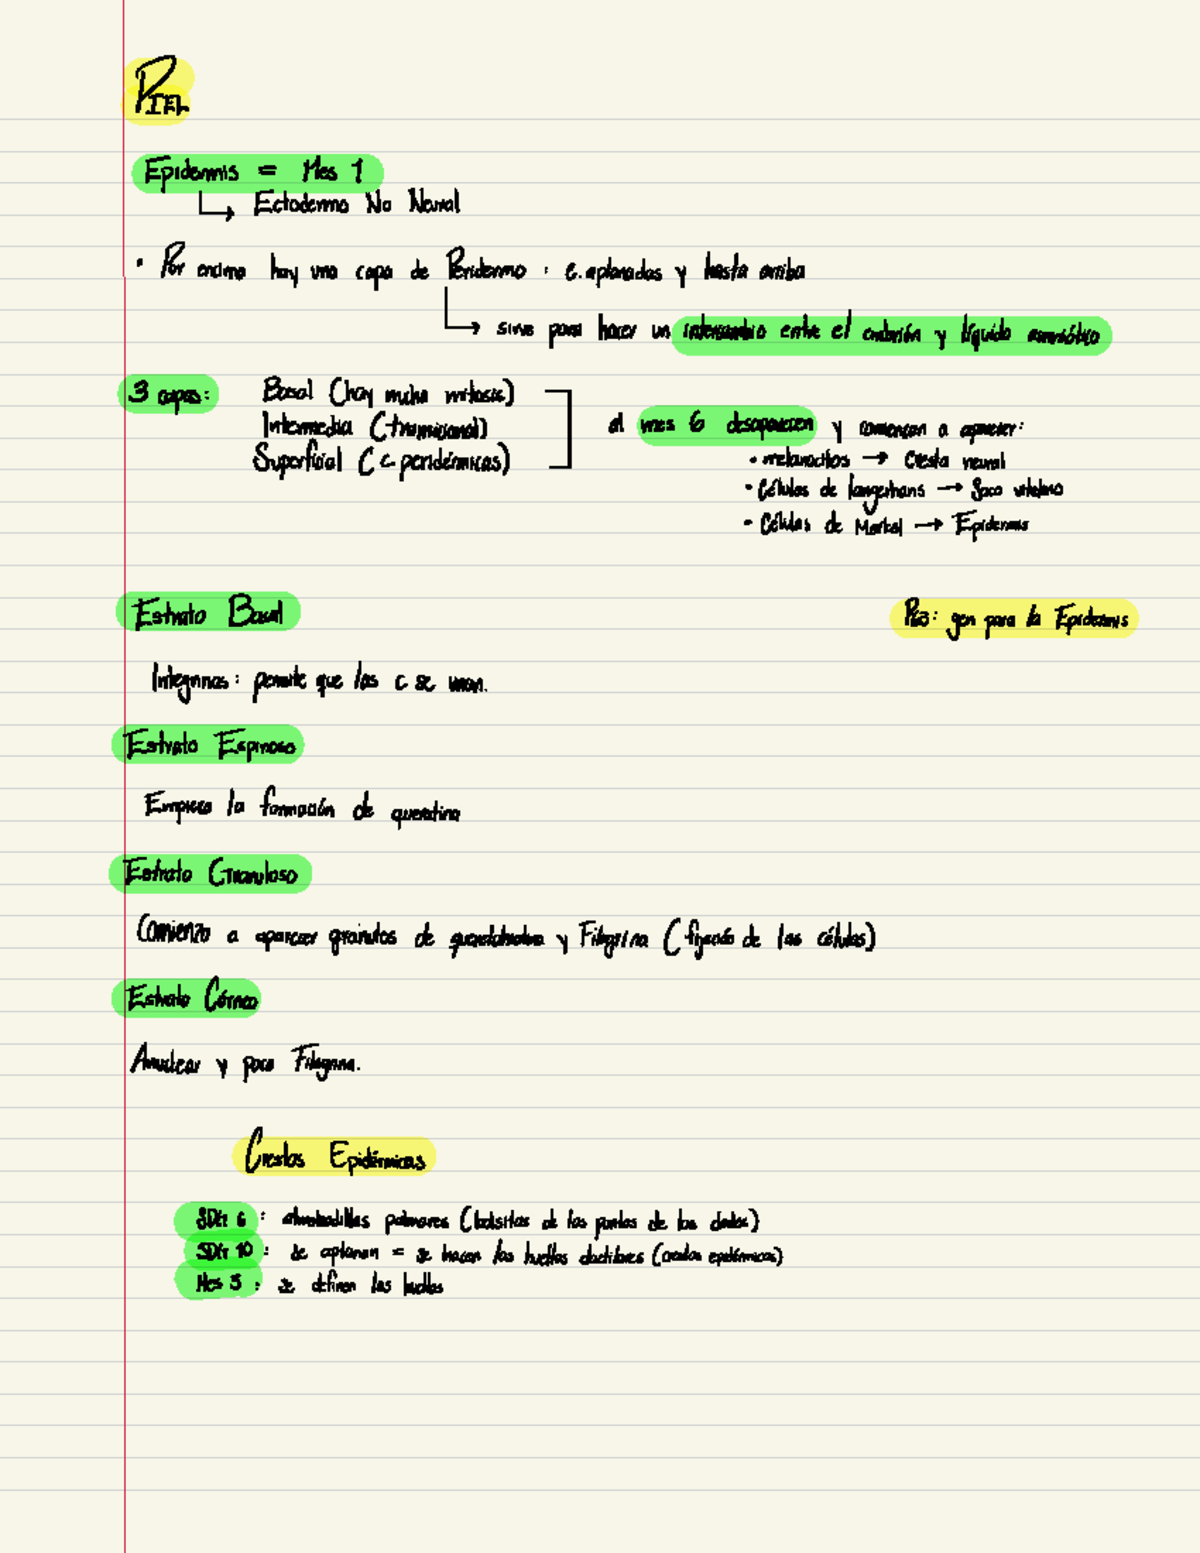 PIEL
Epidermis = Mes 1
↳ Ectodermo No Neural
• Por encima hay una capa de Peridermo : c. aplanadas y hasta arriba
↳ sirve para hacer un intercambio entre el embrión y líquido amniótico
3 capas: Basal (hay mucha mitosis)
Intermedia (transicional)
Superficial (c. peridérmicas)
al mes 6 desaparecen y comienzan a aparecer:
• melanocitos → Cresta neural
• Células de Langerhans → Saco vitelino
• Células de Merkel → Epidermis
Estrato Basal
P63: gen para la Epidermis
Integrinas: permite que las c se unan.
Estrato Espinoso
Empieza la formación de queratina
Estrato Granuloso
Comienza a aparecer gránulos de y Filagrina ( de las células)
Estrato Córneo
Anuclear y poca Filagrina.
Crestas Epidérmicas
SDG 6 : almohadillas palmares (bolsitas de las puntas de los dedos)
SDG 10 : se aplanan = se hacen las huellas dactilares (crestas epidérmicas)
Mes 5 : se definen las huellas